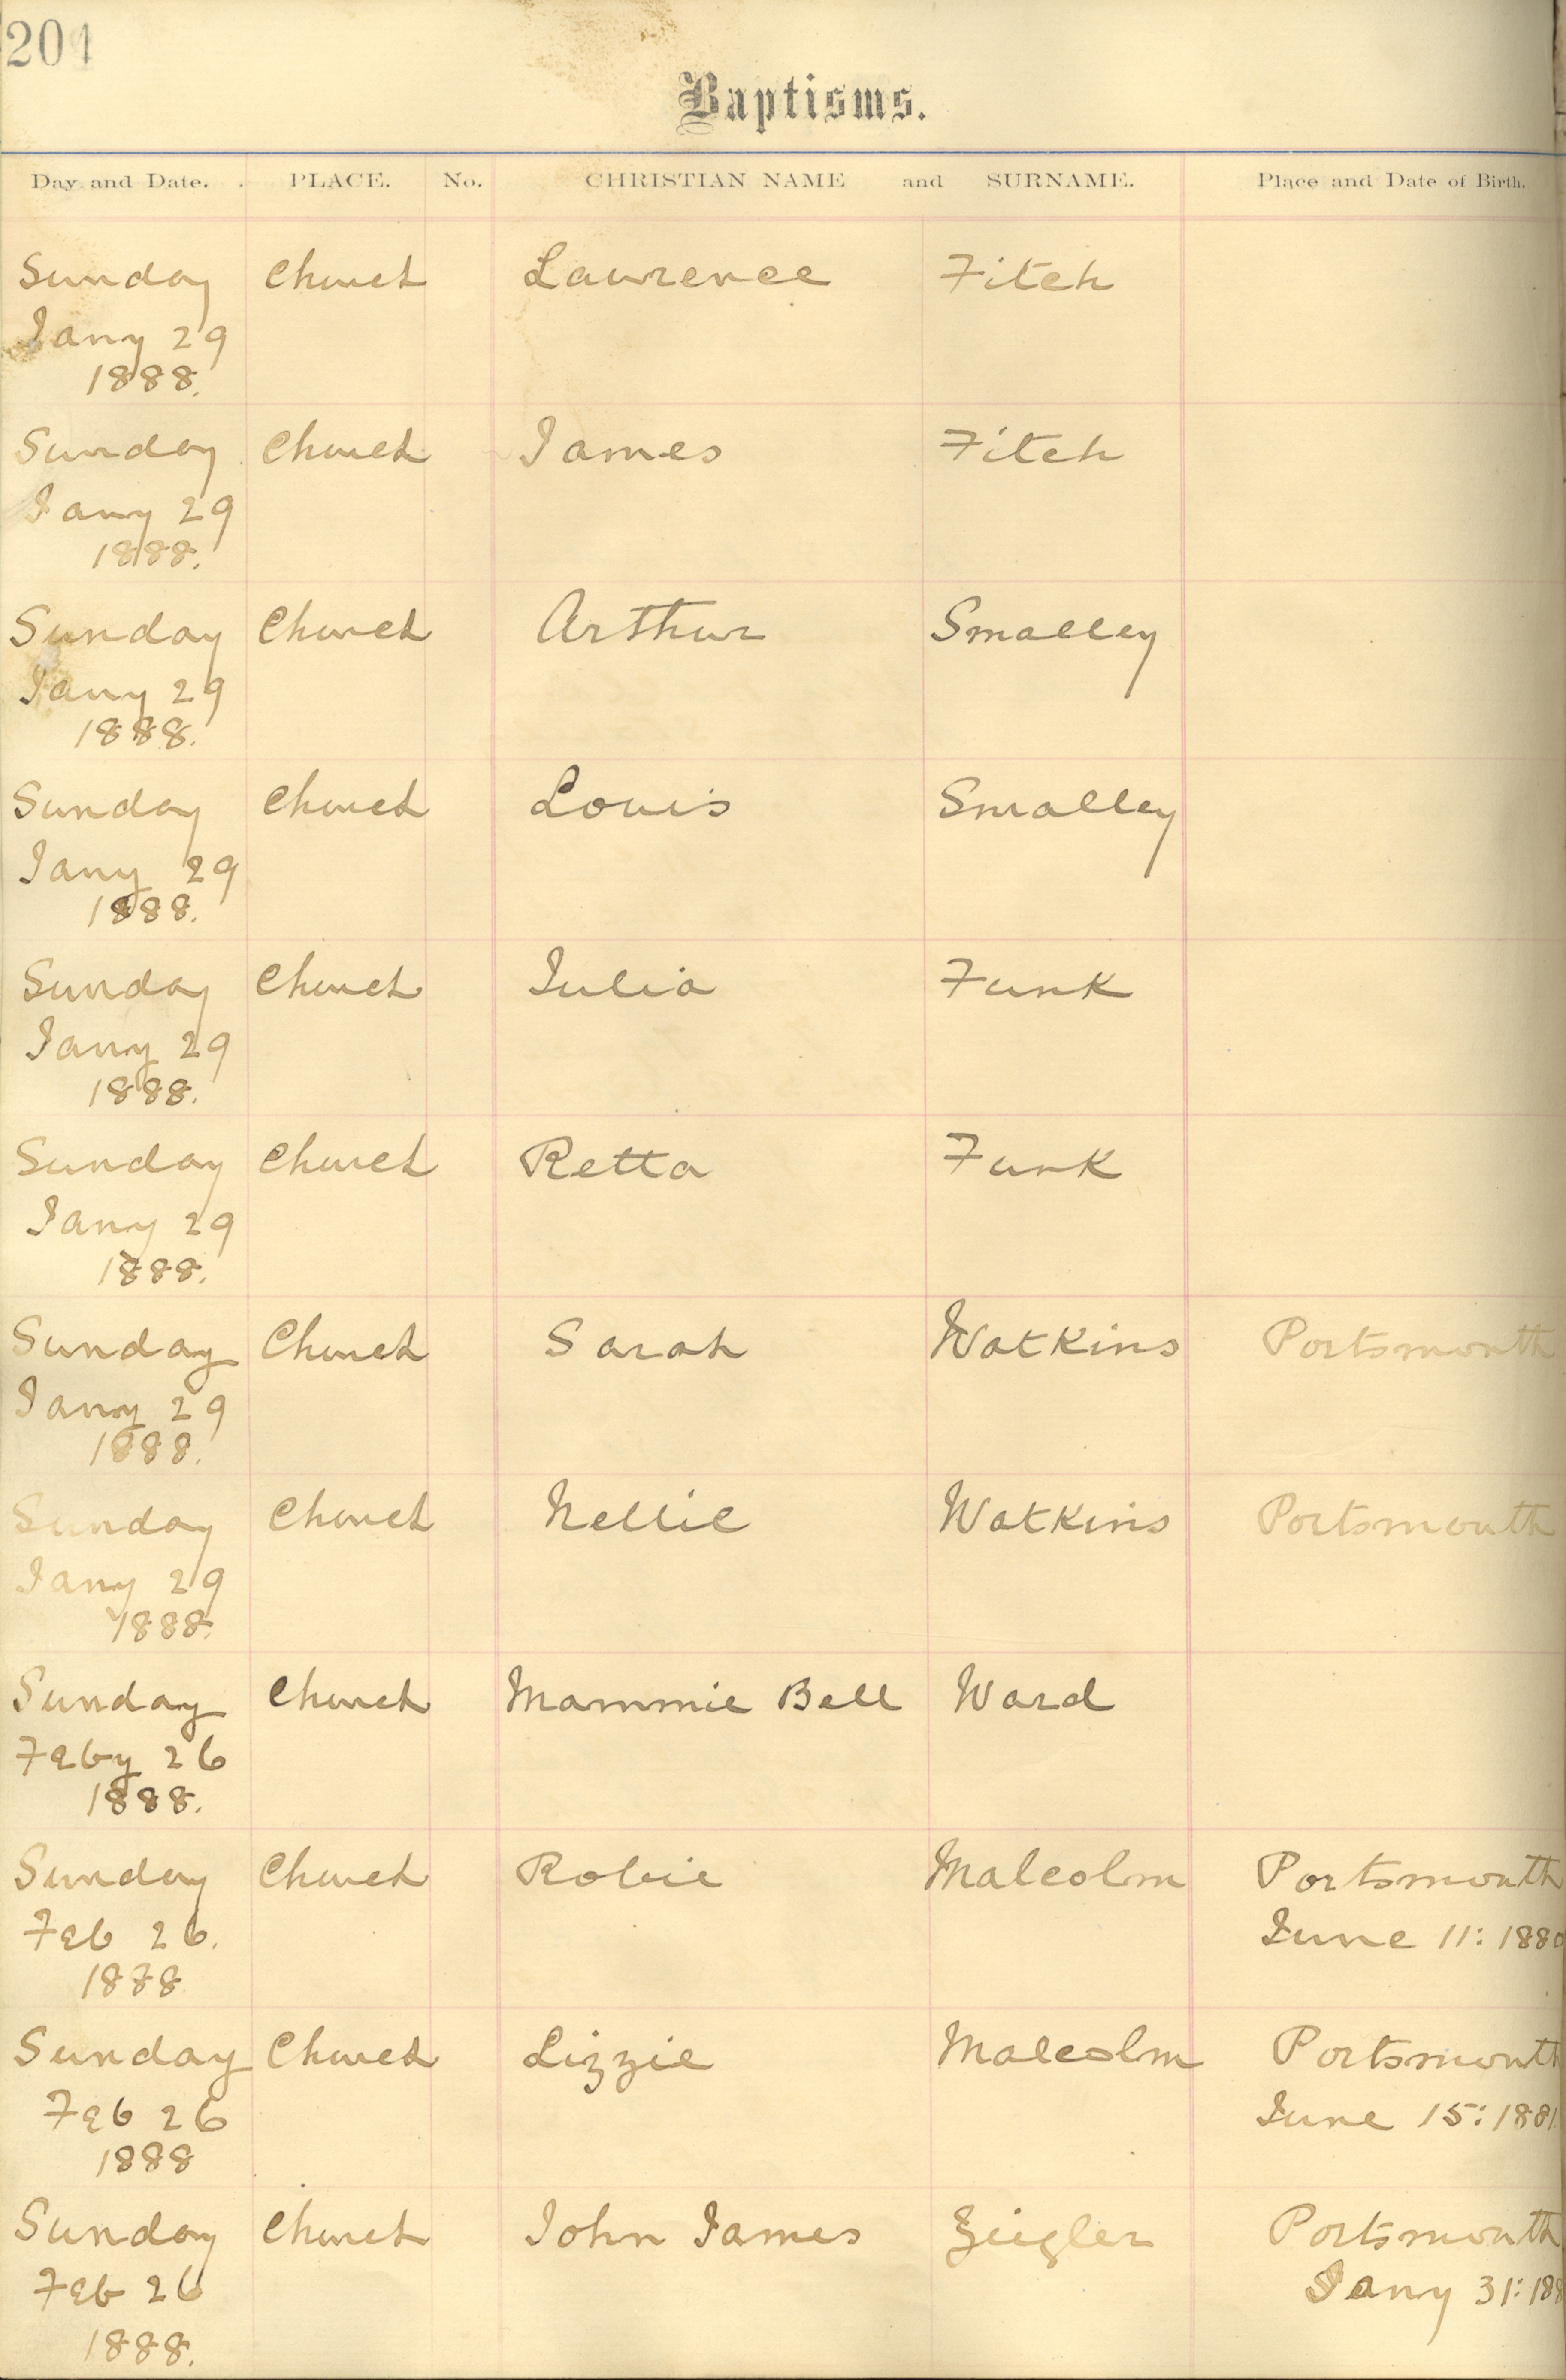 204
Baptisms.
Day and Date. PLACE. No. CHRISTIAN NAME and SURNAME. Place and Date of Birth.
Sunday Church Lawrence Fitch
Jany 29
1888.
Sunday Church James Fitch
Jany 29
1888.
Sunday Church Arthur Smalley
Jany 29
1888.
Sunday Church Louis Smalley
Jany 29
1888.
Sunday Church Julia Funk
Jany 29
1888.
Sunday Church Retta Funk
Jany 29
1888.
Sunday Church Sarah Watkins Portsmouth
Jany 29
1888.
Sunday Church Nellie Watkins Portsmouth
Jany 29
1888.
Sunday Church Mammie Bell Ward
Feby 26
1888.
Sunday Church Robie Malcolm Portsmouth
Feb 26. June 11: 1880
1888
Sunday Church Lizzie Malcolm Portsmouth
Feb 26 June 15: 1881
1888
Sunday Church John James Zeigler Portsmouth
Feb 26 Jany 31:
1888.